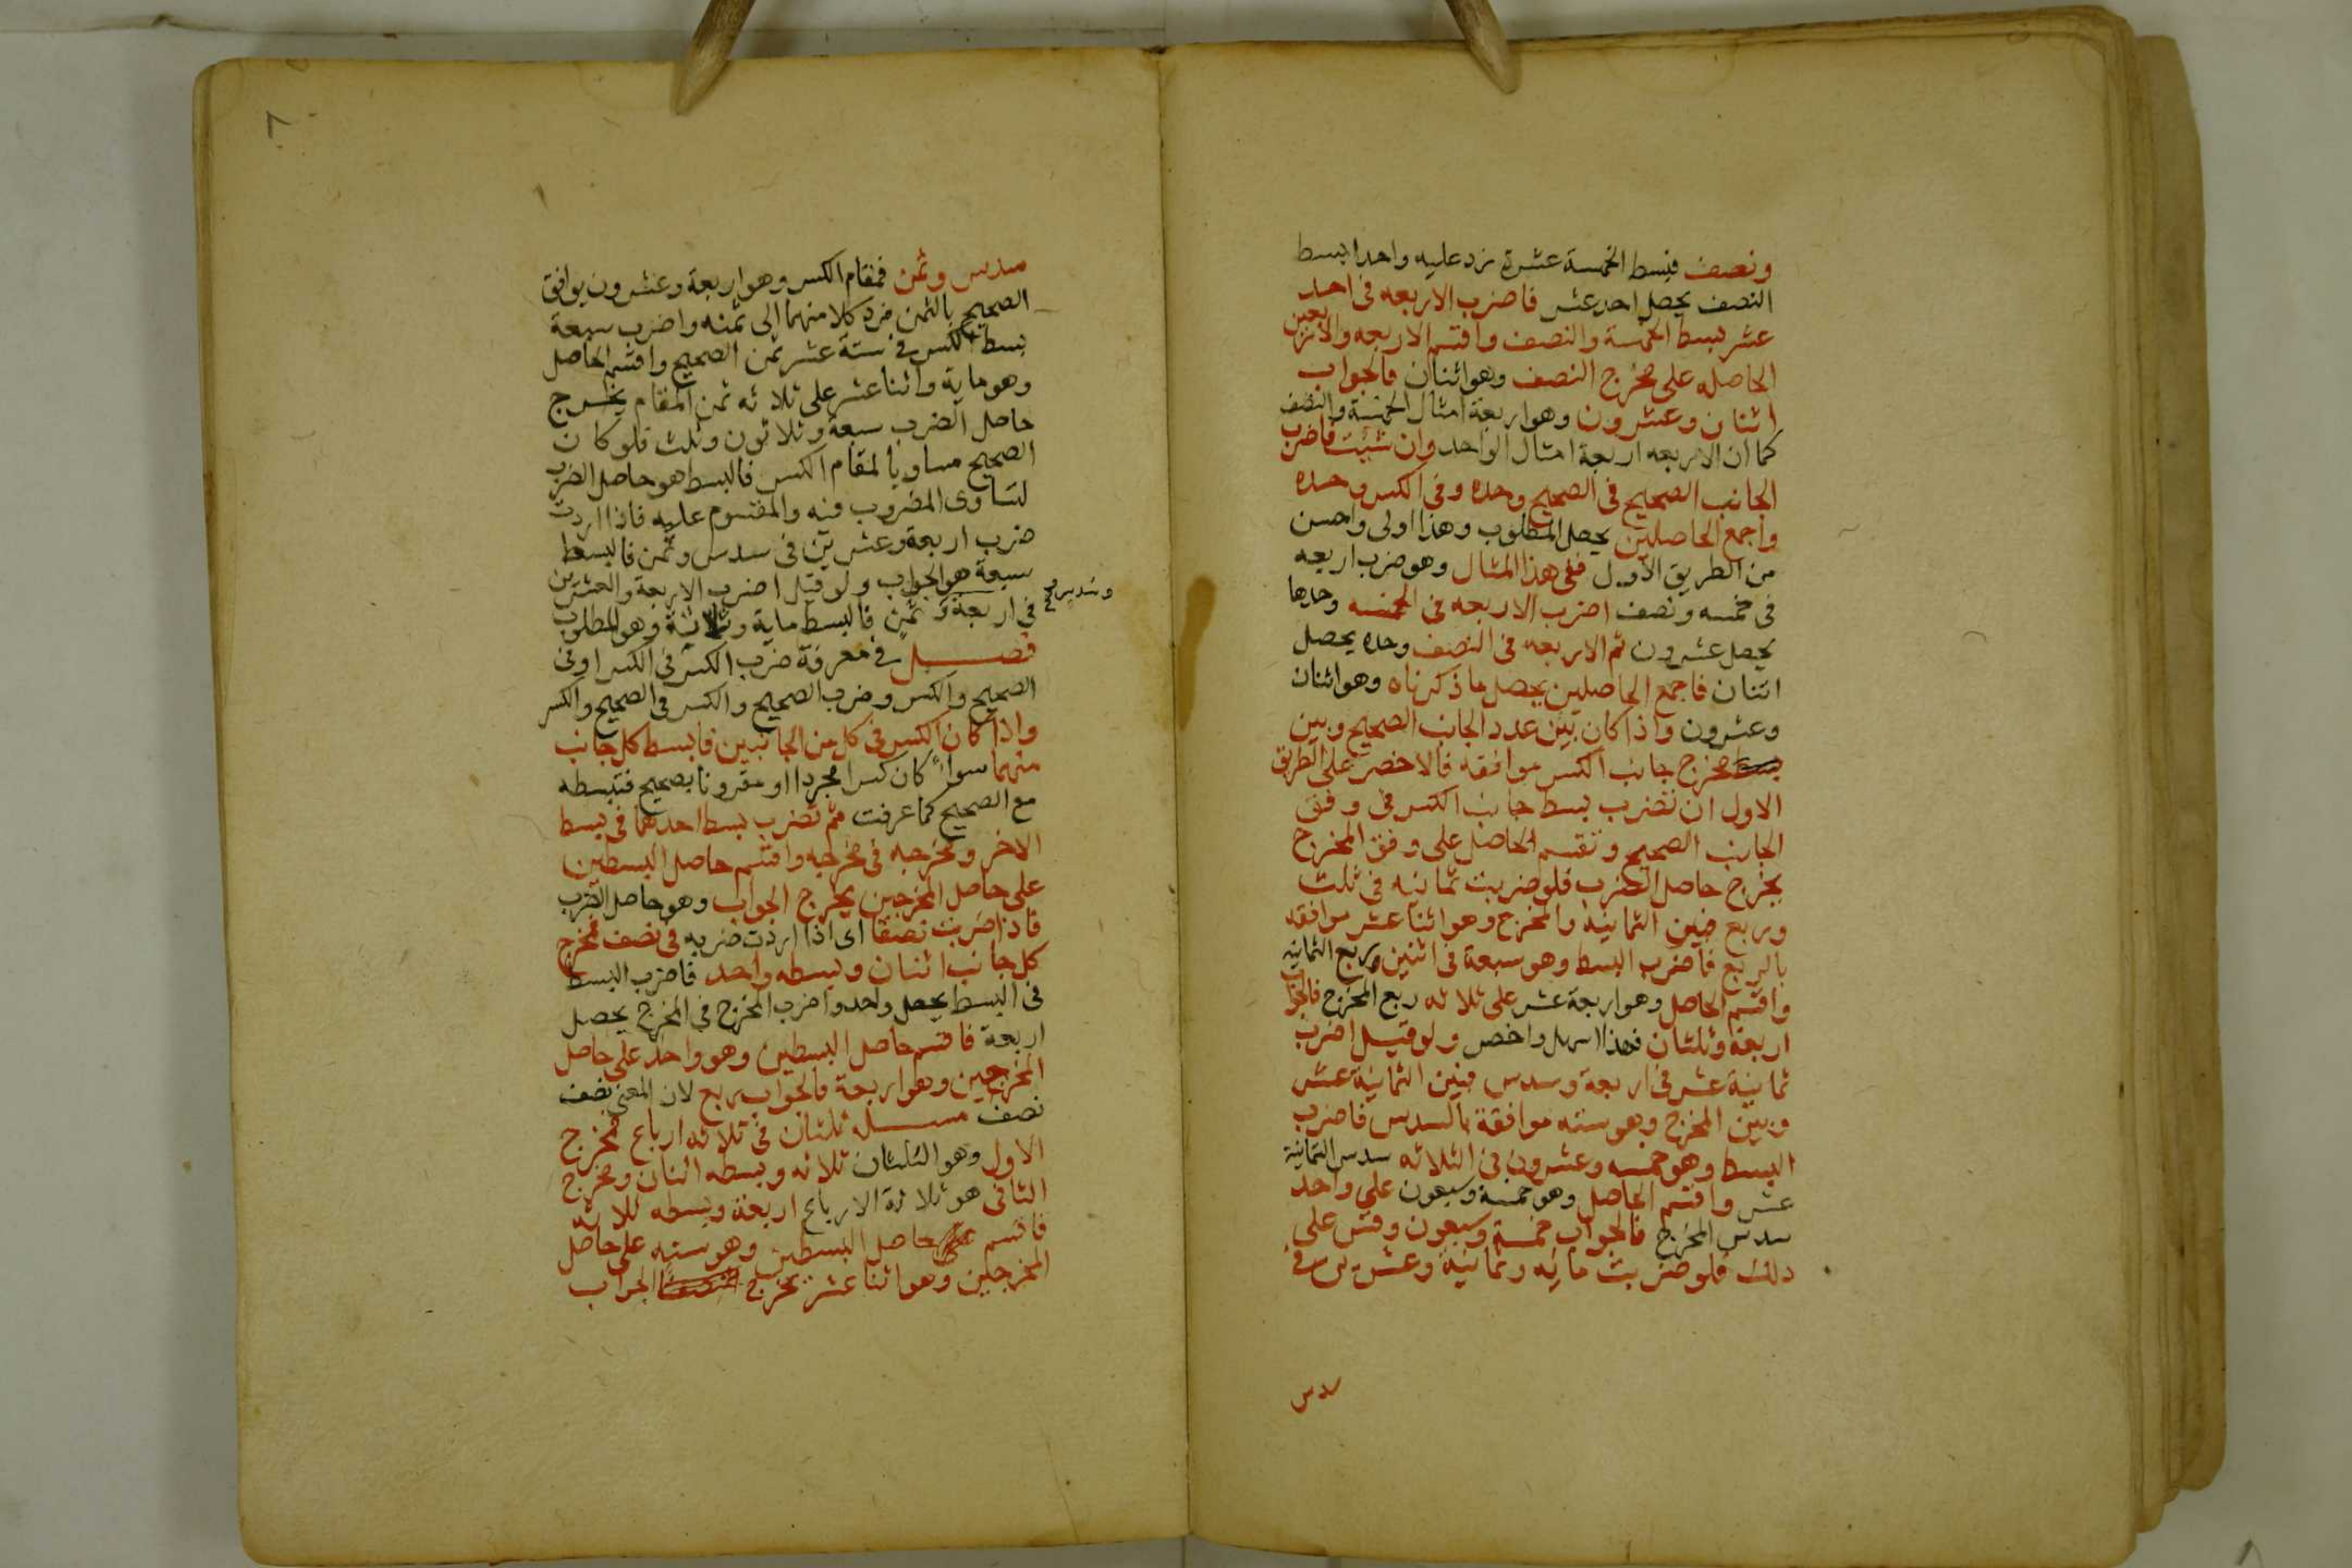 ونصف فبسط الخمسة عشرة نزد عليه واحدا بسط
النصف يحصل احد عشر فاضرب الاربعه فى احد
عشر بسط الخمسة والنصف واقسم الاربعه والاربعين
الحاصله على مخرج النصف وهو اثنان فالجواب
اثنان وعشرون وهو اربعة امثال الخمسة والنصف
كما ان الاربعه اربعة امثال الواحد وان شئت فاضرب
الجانب الصحيح فى الصحيح وحده وفى الكسر وحده
واجمع الحاصلين يحصل المطلوب وهذا اولى واحسن
من الطريق الاول ففى هذا المثال وهو ضرب اربعه
فى خمسه ونصف اضرب الاربعه فى الخمسه وحدها
يحصل عشرون ثم الاربعه فى النصف وحده يحصل
اثنان فاجمع الحاصلين يحصل ما ذكرناه وهو اثنان
وعشرون واذا كان بين عدد الجانب الصحيح وبين
مخرج جانب الكسر موافقه فالاخصر على الطريق
الاول ان تضرب بسط جانب الكسر فى وفق
الجانب الصحيح وتقسم الحاصل على وفق المخرج
يخرج حاصل الضرب فلو ضربت ثمانيه فى ثلث
وربع فبين الثمانية والمخرج وهو اثنا عشر موافقه
بالربع فاضرب البسط وهو سبعة فى اثنين ربع الثمانيه
واقسم الحاصل وهو اربعة عشر على ثلاثه ربع المخرج فالجواب
اربعة وثلثان فهذا اسهل واخصر ولو قيل اضرب
ثمانية عشر فى اربعة وسدس فبين الثمانية عشر
وبين المخرج وهو سته موافقة بالسدس فاضرب
البسط وهو خمسه وعشرون فى الثلاثه سدس الثمانية
عشر واقسم الحاصل وهو خمسة وسبعون على واحد
سدس المخرج فالجواب خمسة وسبعون وقس على
ذلك فلو ضربت مائه وثمانية وعشرين فى
سدس
٨
سدس وثمن فمقام الكسر وهو اربعة وعشرون يوافق
الصحيح بالثمن فرد كلا منهما الى ثمنه واضرب سبعة
بسط الكسر فى ستة عشر ثمن الصحيح واقسم الحاصل
وهو ماية واثنا عشر على ثلاثه ثمن المقام يخرج
حاصل الضرب سبعة وثلاثون وثلث فلو كان
الصحيح مساويا لمقام الكسر فالبسط هو حاصل الضرب
لتساوى المضروب فيه والمقسوم عليه فاذا اردت
ضرب اربعة وعشرين فى سدس وثمن فالبسط
سبعة هو الجواب ولو قيل اضرب الاربعة والعشرين
فى اربعة وثمن فالبسط ماية وثلاثة وهو المطلوب
وسدس صح
فصل فى معرفة ضرب الكسر فى الكسر او فى
الصحيح والكسر وضرب الصحيح والكسر فى الصحيح والكسر
واذا كان الكسر فى كل من الجانبين فابسط كل جانب
منهما سواء كان كسرا مجردا او مقرونا بصحيح فتبسطه
مع الصحيح كما عرفت ثم تضرب بسط احدهما فى بسط
الاخر ومخرجه فى مخرجه واقسم حاصل البسطين
على حاصل المخرجين يخرج الجواب وهو حاصل الضرب
فاذا ضربت نصفا اى اذا اردت ضربه فى نصف فمخرج
كل جانب اثنان وبسطه واحد فاضرب البسط
فى البسط يحصل واحد واضرب المخرج فى المخرج يحصل
اربعة فاقسم حاصل البسطين وهو واحد على حاصل
المخرجين وهو اربعة فالجواب ربع لان المعنى نصف
نصف مسله ثلثان فى ثلاثه ارباع فمخرج
الاول وهو الثلثان ثلاثه وبسطه اثنان ومخرج
الثانى هو ثلاثة الارباع اربعة وبسطه ثلاثه
فاقسم حاصل البسطين وهو سته على حاصل
المخرجين وهو اثنا عشر يخرج الجواب